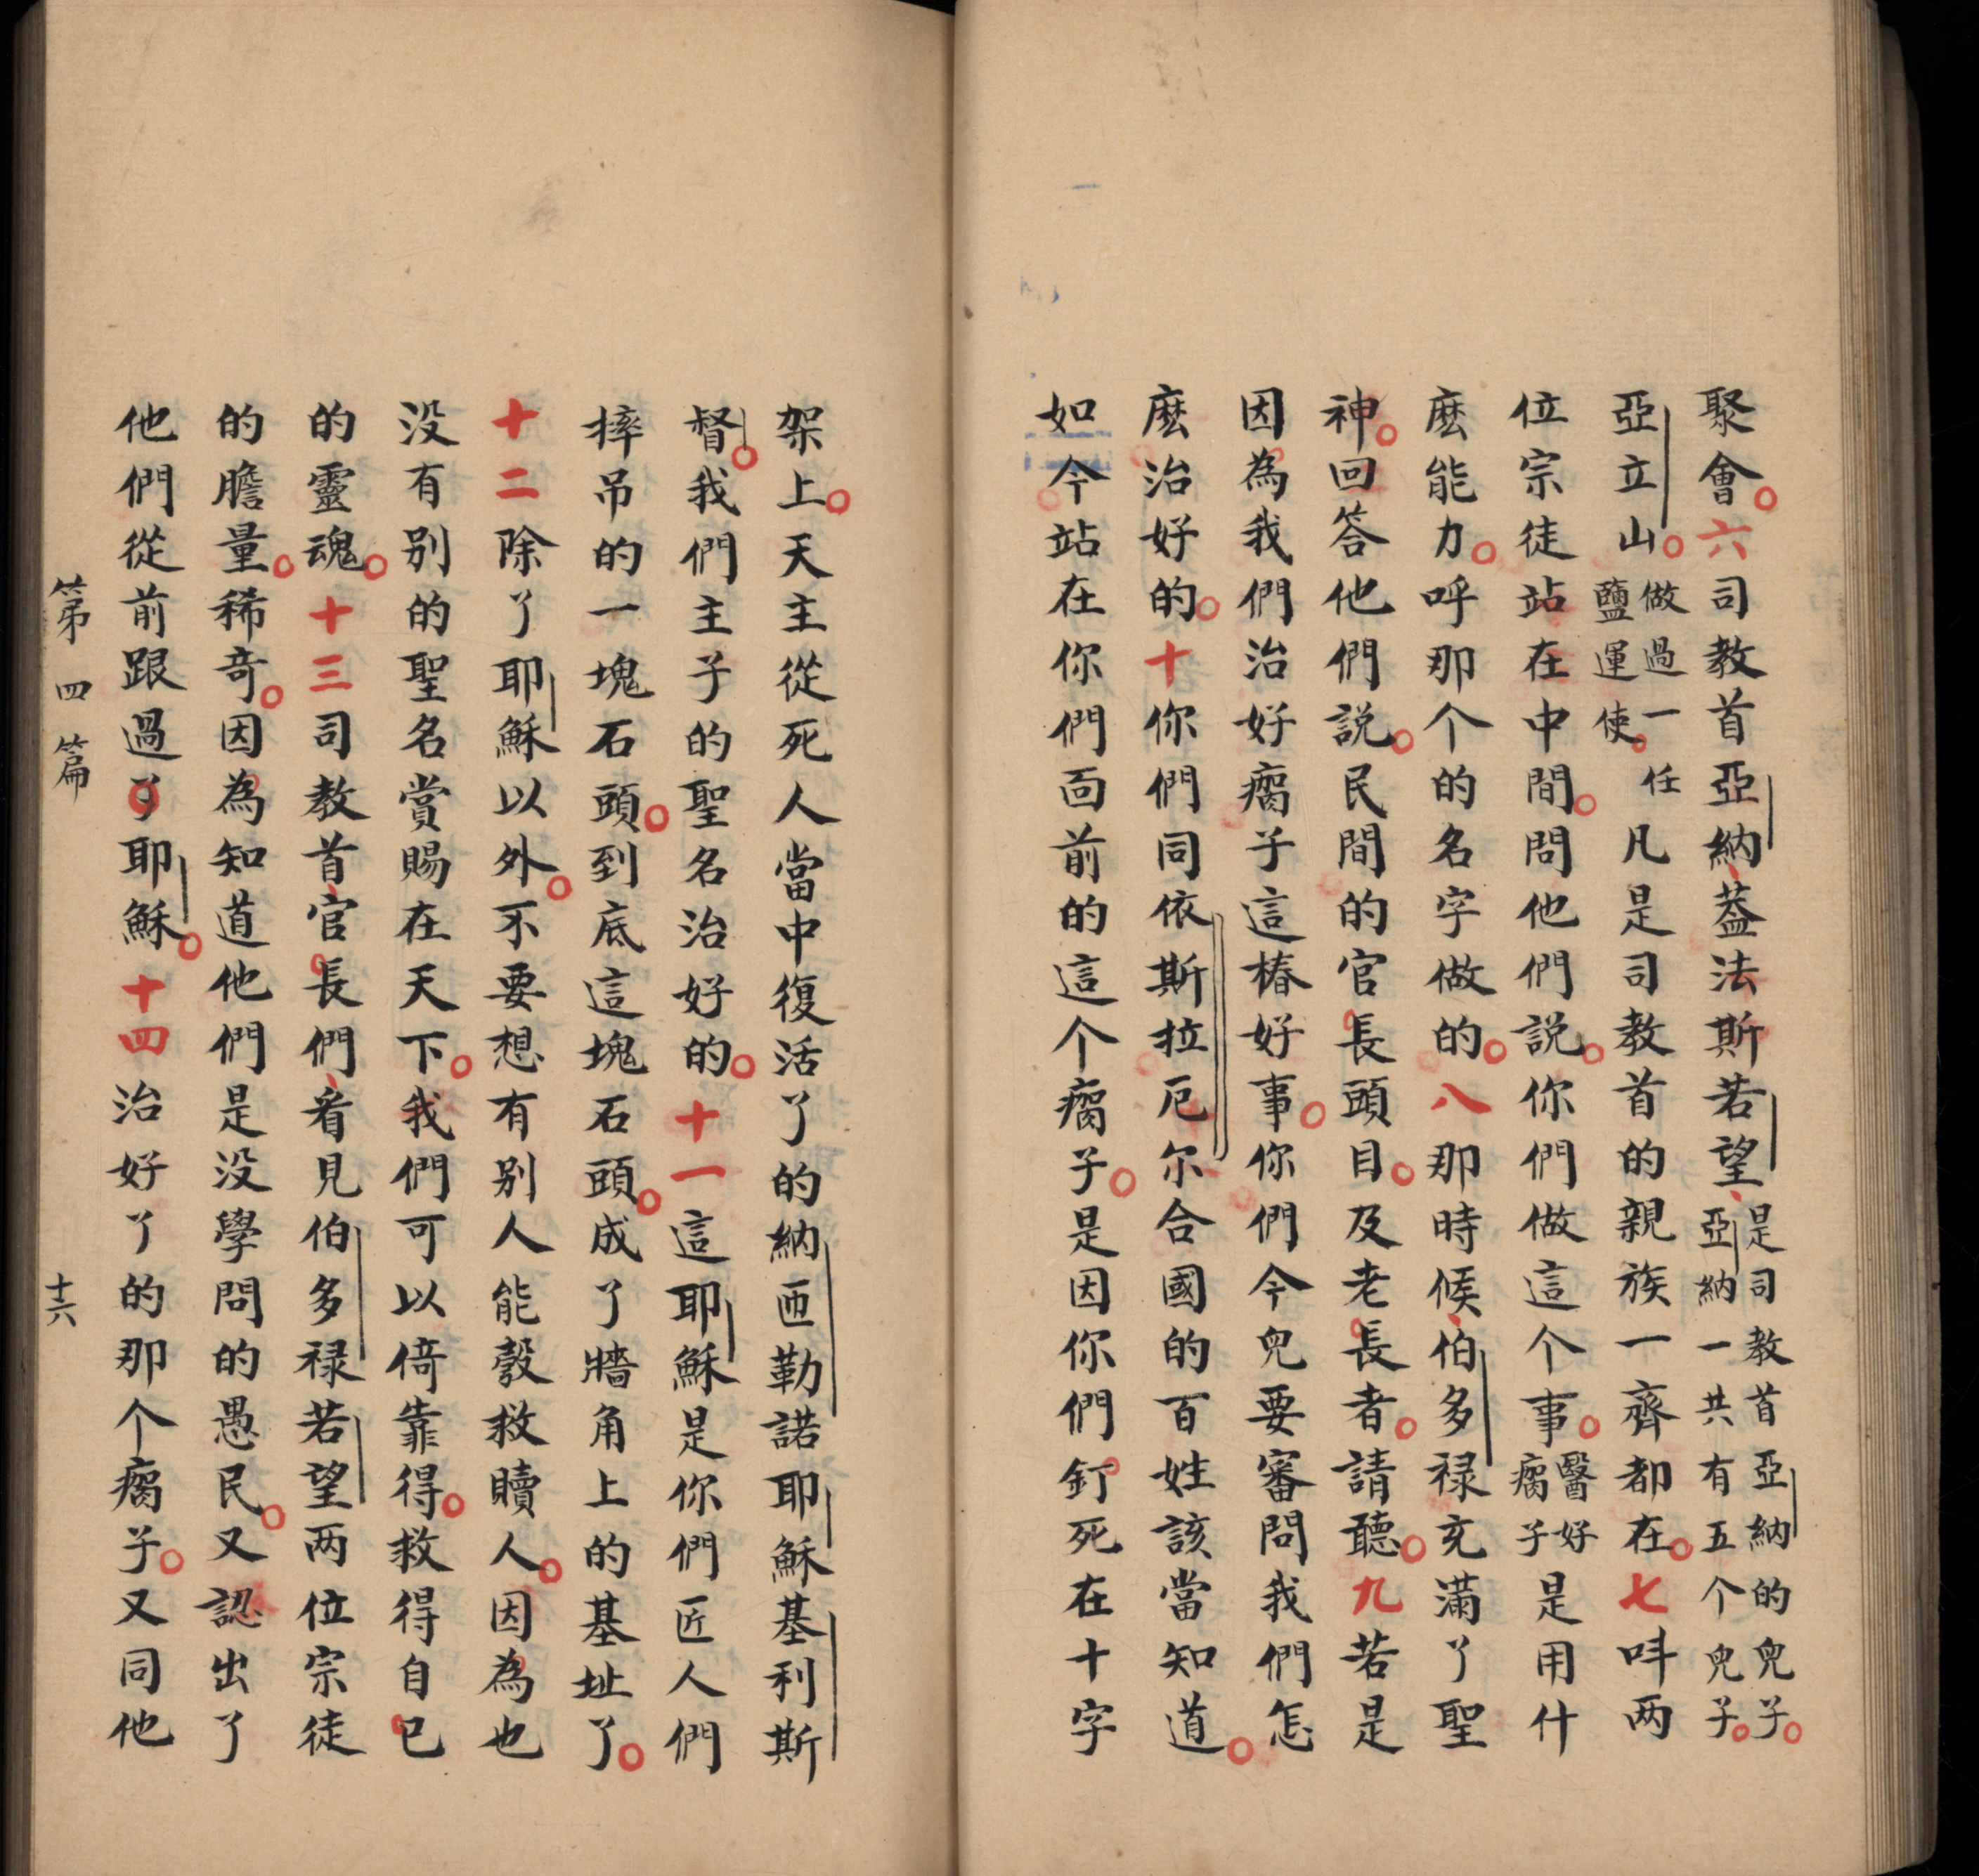 聚會。六司教首亞納、葢法斯若望、是司教首亞納的兒子。亞納一共有五个兒子。
亞立山。做過一任鹽運使。凡是司教首的親族一齊都在。七呌两
位宗徒站在中間。問他們說。你們做這个事。醫好瘸子是用什
麽能力。呼那个的名字做的。八那時候、伯多禄充滿了聖
神。回答他們説。民間的官長頭目。及老長者。請聽。九若是
因為我們治好瘸子這樁好事。你們今兒要審問我們怎
麽治好的。十你們同依斯拉厄尔合國的百姓該當知道。
如今站在你們面前的這个瘸子。是因你們釘死在十字
架上。天主從死人當中復活了的納匝勒諾耶穌基利斯
督。我們主子的聖名治好的。十一這耶穌是你們匠人們
摔吊的一塊石頭。到底這塊石頭。成了牆角上的基址了。
十二除了耶穌以外。不要想有别人能彀救贖人。因為也
没有别的聖名賞賜在天下。我們可以倚靠得。救得自己
的靈魂。十三司教首、官長們、看見伯多禄若望两位宗徒
的膽量。稀奇。因為知道他們是没學問的愚民。又認出了
他們從前跟過了耶穌。十四治好了的那个瘸子。又同他
第四篇 十六